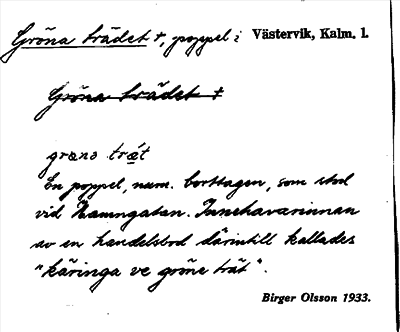 Gröna trädet †, poppel i Västervik, Kalm. l.
Gröna trädet †
grønə trǽt
En poppel, num. borttagen, som stod
vid Hamngatan. Innehavarinnan
av en handelsbod därintill kallades
"käringa ve gröne trät".
Birger Olsson 1933.